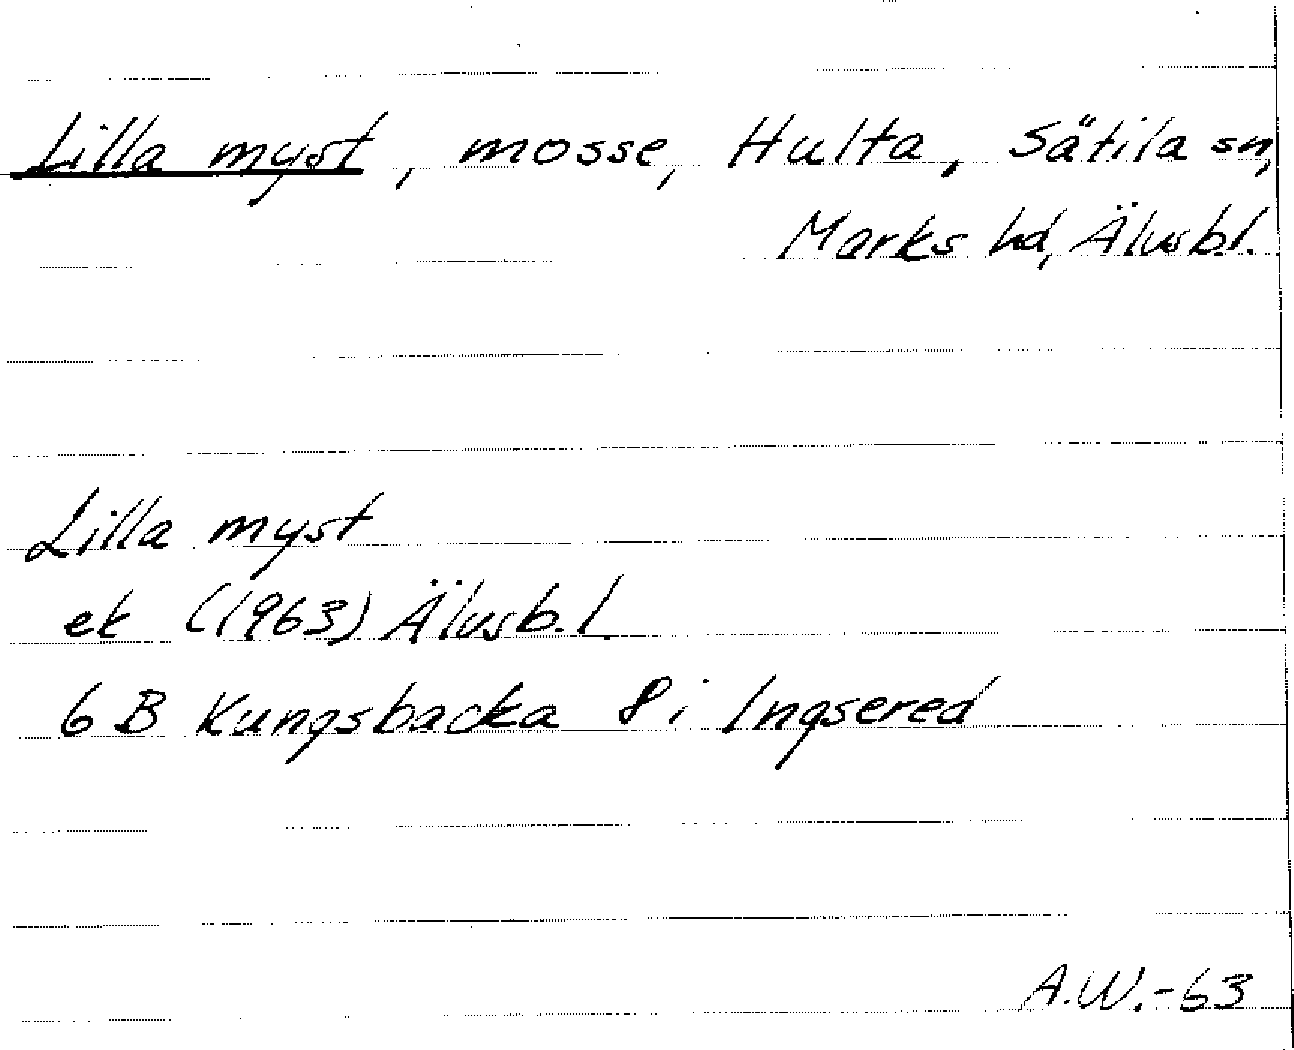 Lilla myst, mosse, Hulta, Sätila sn,
Marks hd, Älvsb.l.
Lilla myst
ek (1963) Älvsb.l.
6 B Kungsbacka 8 i Ingsered
A.W.-63